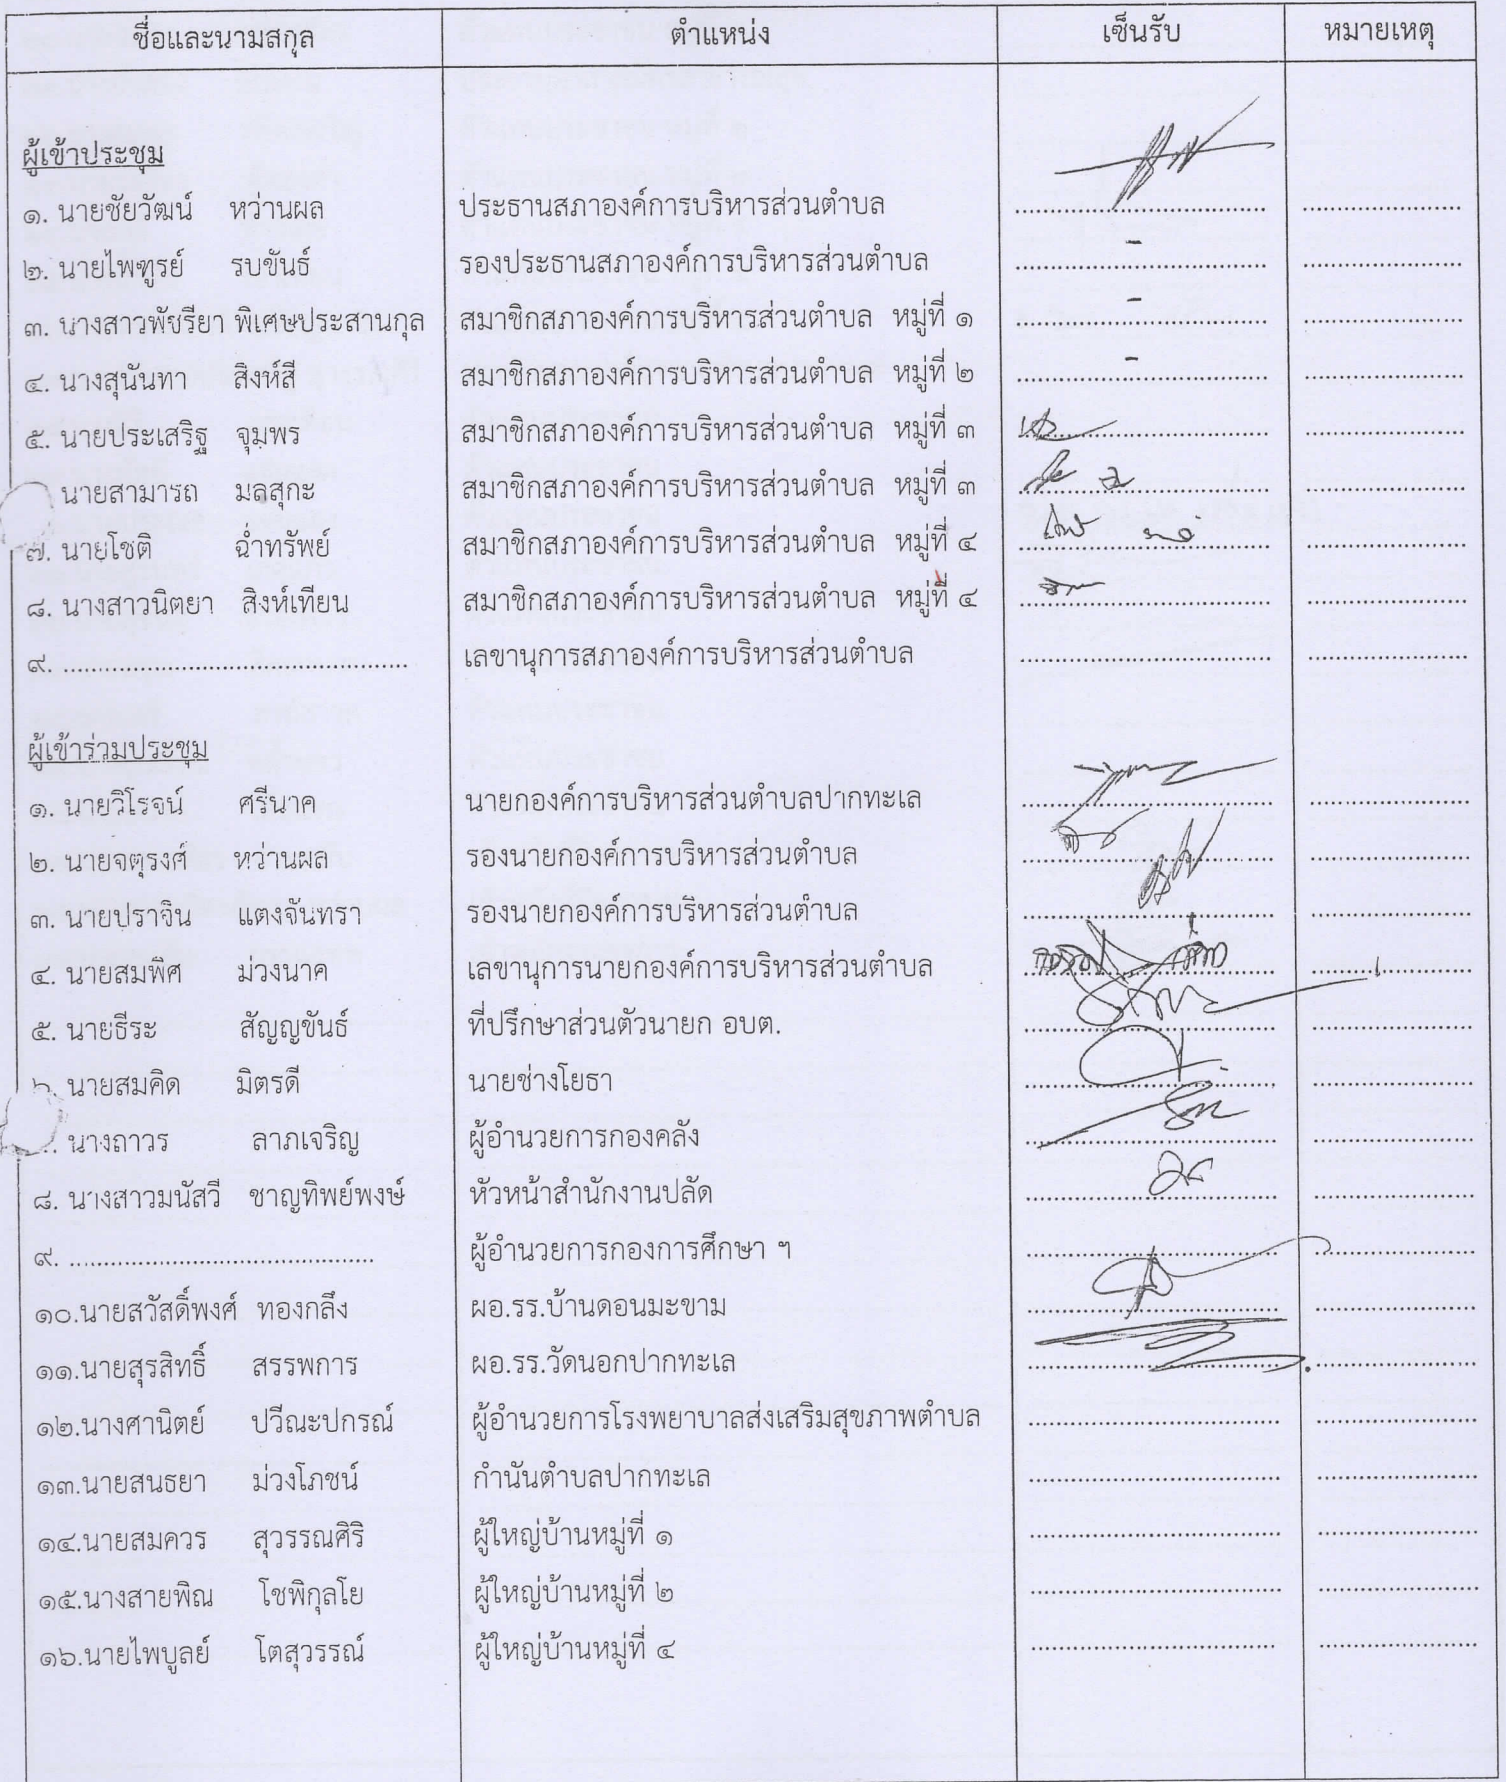 ชื่อและนามสกุล ตำแหน่ง เซ็นรับ หมายเหตุ
ผู้เข้าประชุม
๑. นายชัยวัฒน์ หว่านผล ประธานสภาองค์การบริหารส่วนตำบล
๒. นายไพฑูรย์ รบขันธ์ รองประธานสภาองค์การบริหารส่วนตำบล -
๓. นางสาวพัชรียา พิเศษประสานกุล สมาชิกสภาองค์การบริหารส่วนตำบล หมู่ที่ ๑ -
๔. นางสุนันทา สิงห์สี สมาชิกสภาองค์การบริหารส่วนตำบล หมู่ที่ ๒ -
๕. นายประเสริฐ จุมพร สมาชิกสภาองค์การบริหารส่วนตำบล หมู่ที่ ๓
นายสามารถ มลสุกะ สมาชิกสภาองค์การบริหารส่วนตำบล หมู่ที่ ๓
๗. นายโชติ ฉ่ำทรัพย์ สมาชิกสภาองค์การบริหารส่วนตำบล หมู่ที่ ๔
๘. นางสาวนิตยา สิงห์เทียน สมาชิกสภาองค์การบริหารส่วนตำบล หมู่ที่ ๔
๙. .................................................. เลขานุการสภาองค์การบริหารส่วนตำบล
ผู้เข้าร่วมประชุม
๑. นายวิโรจน์ ศรีนาค นายกองค์การบริหารส่วนตำบลปากทะเล
๒. นายจตุรงศ์ หว่านผล รองนายกองค์การบริหารส่วนตำบล
๓. นายปราจิน แตงจันทรา รองนายกองค์การบริหารส่วนตำบล
๔. นายสมพิศ ม่วงนาค เลขานุการนายกองค์การบริหารส่วนตำบล
๕. นายธีระ สัญญขันธ์ ที่ปรึกษาส่วนตัวนายก อบต.
๖. นายสมคิด มิตรดี นายช่างโยธา
นางถาวร ลาภเจริญ ผู้อำนวยการกองคลัง
๘. นางสาวมนัสวี ชาญทิพย์พงษ์ หัวหน้าสำนักงานปลัด
๙. ............................................ ผู้อำนวยการกองการศึกษา ฯ
๑๐.นายสวัสดิ์พงศ์ ทองกลึง ผอ.รร.บ้านดอนมะขาม
๑๑.นายสุรสิทธิ์ สรรพการ ผอ.รร.วัดนอกปากทะเล
๑๒.นางศานิตย์ ปวีณะปกรณ์ ผู้อำนวยการโรงพยาบาลส่งเสริมสุขภาพตำบล
๑๓.นายสนธยา ม่วงโภชน์ กำนันตำบลปากทะเล
๑๔.นายสมควร สุวรรณศิริ ผู้ใหญ่บ้านหมู่ที่ ๑
๑๕.นางสายพิณ โชพิกุลโย ผู้ใหญ่บ้านหมู่ที่ ๒
๑๖.นายไพบูลย์ โตสุวรรณ์ ผู้ใหญ่บ้านหมู่ที่ ๔